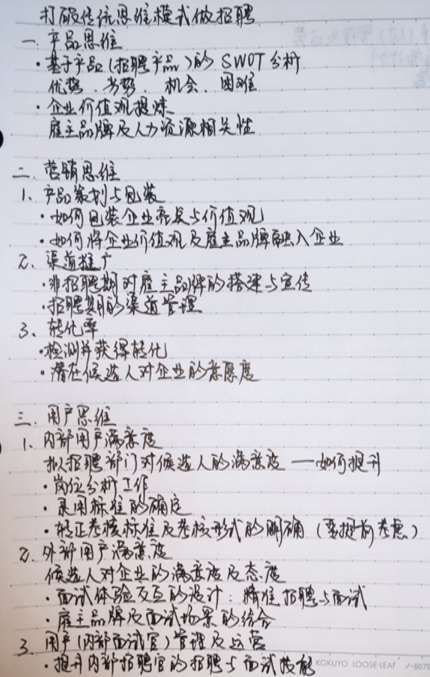 打破传统思维模式做招聘
一. 产品思维
·基于产品(招聘产品)的SWOT分析
优势、劣势、机会、困难
·企业价值观提炼
雇主品牌及人力资源相关性
二. 营销思维
1、产品策划与包装
·如何包装企业 与价值观
·如何将企业价值观及雇主品牌融入企业
2、渠道推广
·非招聘期对雇主品牌的搭建与宣传
·招聘期的渠道管理
3、转化率
·检测并获得转化
·潜在候选人对企业的意愿度
三. 用户思维
1、内部用户满意度
拟招聘部门对候选人的满意度——如何提升
·岗位分析工作
·录用标准的确定
·转正考核标准及考核形式的明确(要提前考虑)
2、外部用户满意度
候选人对企业的满意度及态度
·面试体验及互的设计:精准招聘与面试
·雇主品牌及面试场景的结合
3、用户(内部面试官)管理及运营
·提升内部招聘官的招聘与面试技能
KOKUYO LOOSE-LEAF